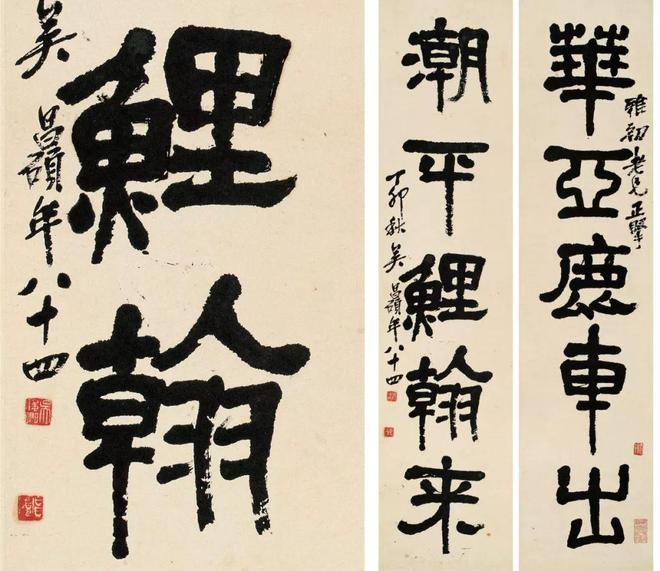 華亞鹿車出
雅初老兄正
潮平鯉翰来
丁卯秋吴昌碩年八十四
鯉翰
吴昌碩年八十四